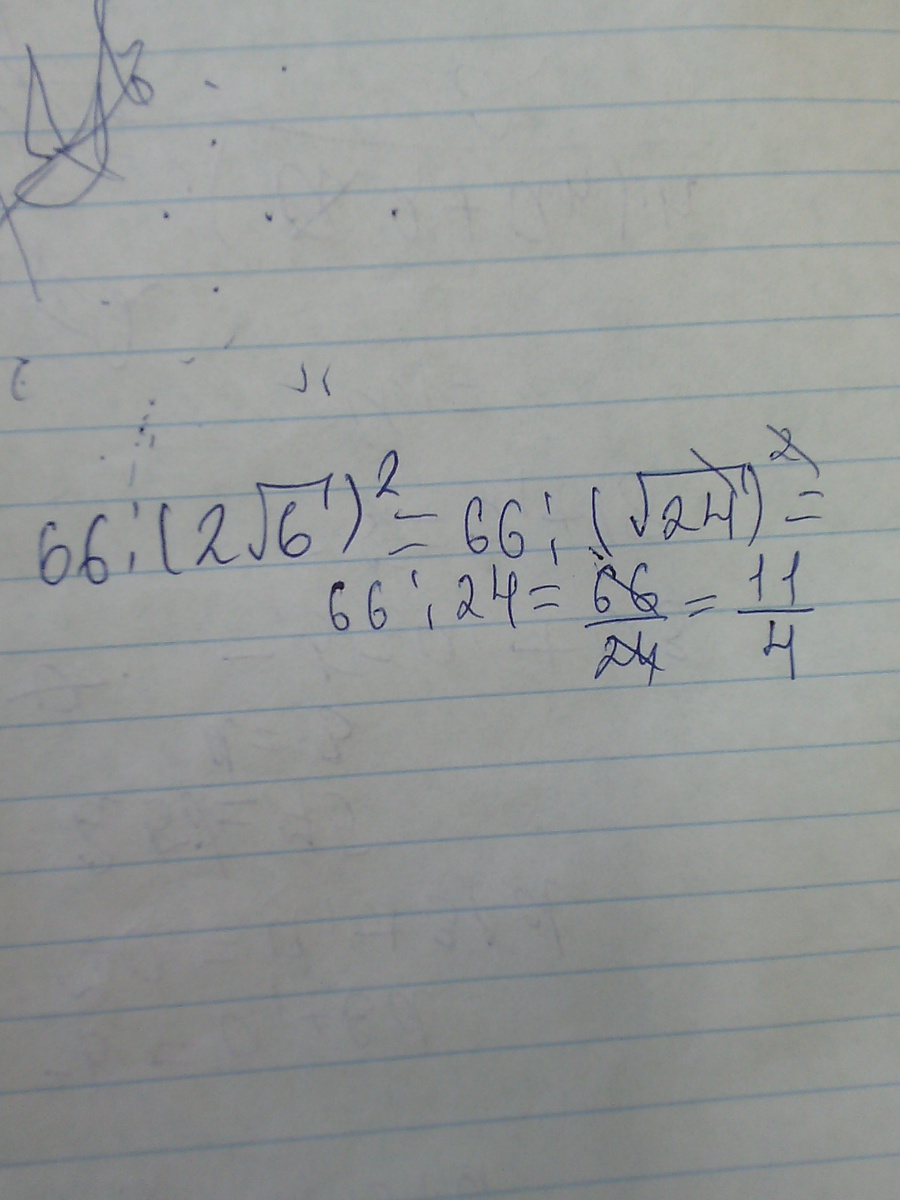 66:(2√6)² = 66:(√24)² =
66:24 = 66/24 = 11/4